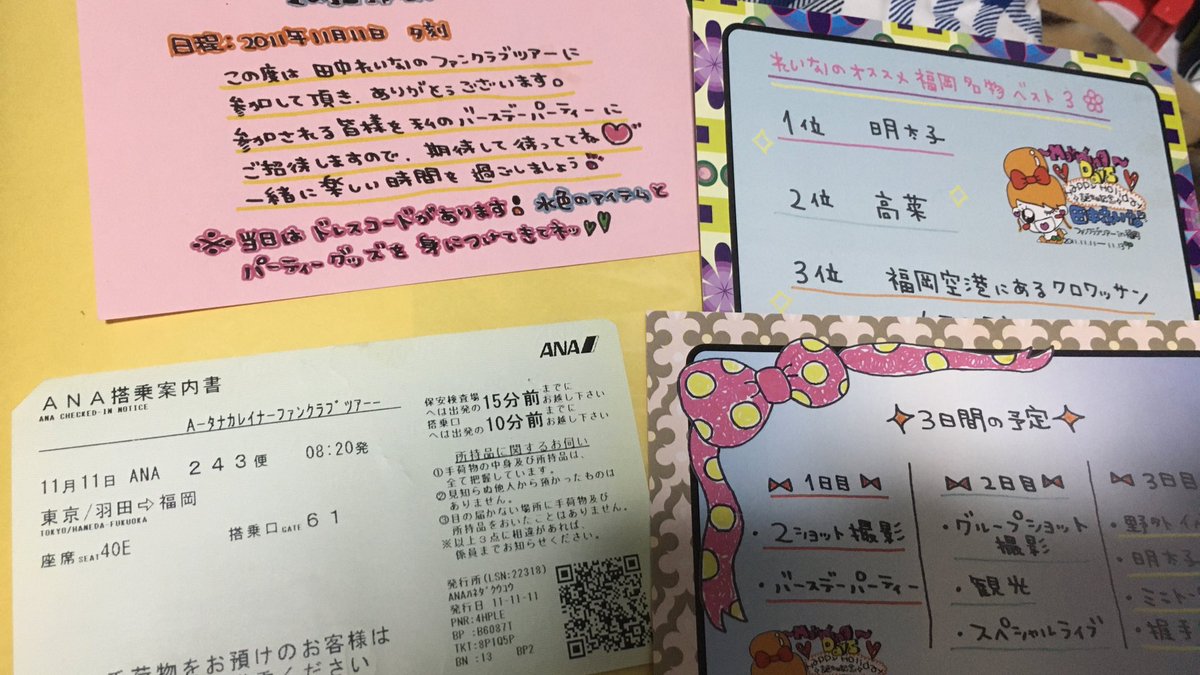 日程：2011年11月11日 夕刻
この度は 田中れいなのファンクラブツアーに
参加して頂き、ありがとうございます。
参加される皆様を私のバースデーパーティーに
ご招待しますので、期待して待っててね
一緒に楽しい時間を過ごしましょう
※当日はドレスコードがあります！水色のアイテムと
パーティーグッズを身につけてきてネッ
れいなのオススメ福岡名物ベスト3
1位 明太子
2位 高菜
3位 福岡空港にあるクロワッサン
DAYS
Happy Holiday
田中れいな
ファンクラブツアーin福岡
2011.11.11―11.13
ANA
ANA搭乗案内書
ANA CHECKED-IN NOTICE
A-タナカレイナーファンクラブツアーー
11月11日 ANA 243便 08:20発
東京/羽田⇨福岡
TOKYO/HANEDA-FUKUOKA
搭乗口GATE 61
座席SEAT 40E
保安検査場へは出発の15分前までにお越し下さい
搭乗口へは出発の10分前までにお越し下さい
所持品に関するお伺い
①手荷物の中身及び所持品は、
全て把握しています。
②見知らぬ他人から預かったものは
ありません。
③目の届かない場所に手荷物及び
所持品をおいたことはありません。
※以上3点に相違があれば、
係員までお知らせください。
発行所(LSN:22318)
ANAﾊﾈﾀﾞｸｳｺｳ
発行日 11-11-11
PNR:4HPLE
BP :B6087T
TKT:8P1Q5P
BN :13 BP2
荷物をお預けのお客様は
ください
3日間の予定
1日目
・2ショット撮影
・バースデーパーティー
2日目
・グループショット
撮影
・観光
・スペシャルライブ
3日目
・野外イ
・明太子
・ミニトー
・握手
DAYS
Happy Holiday